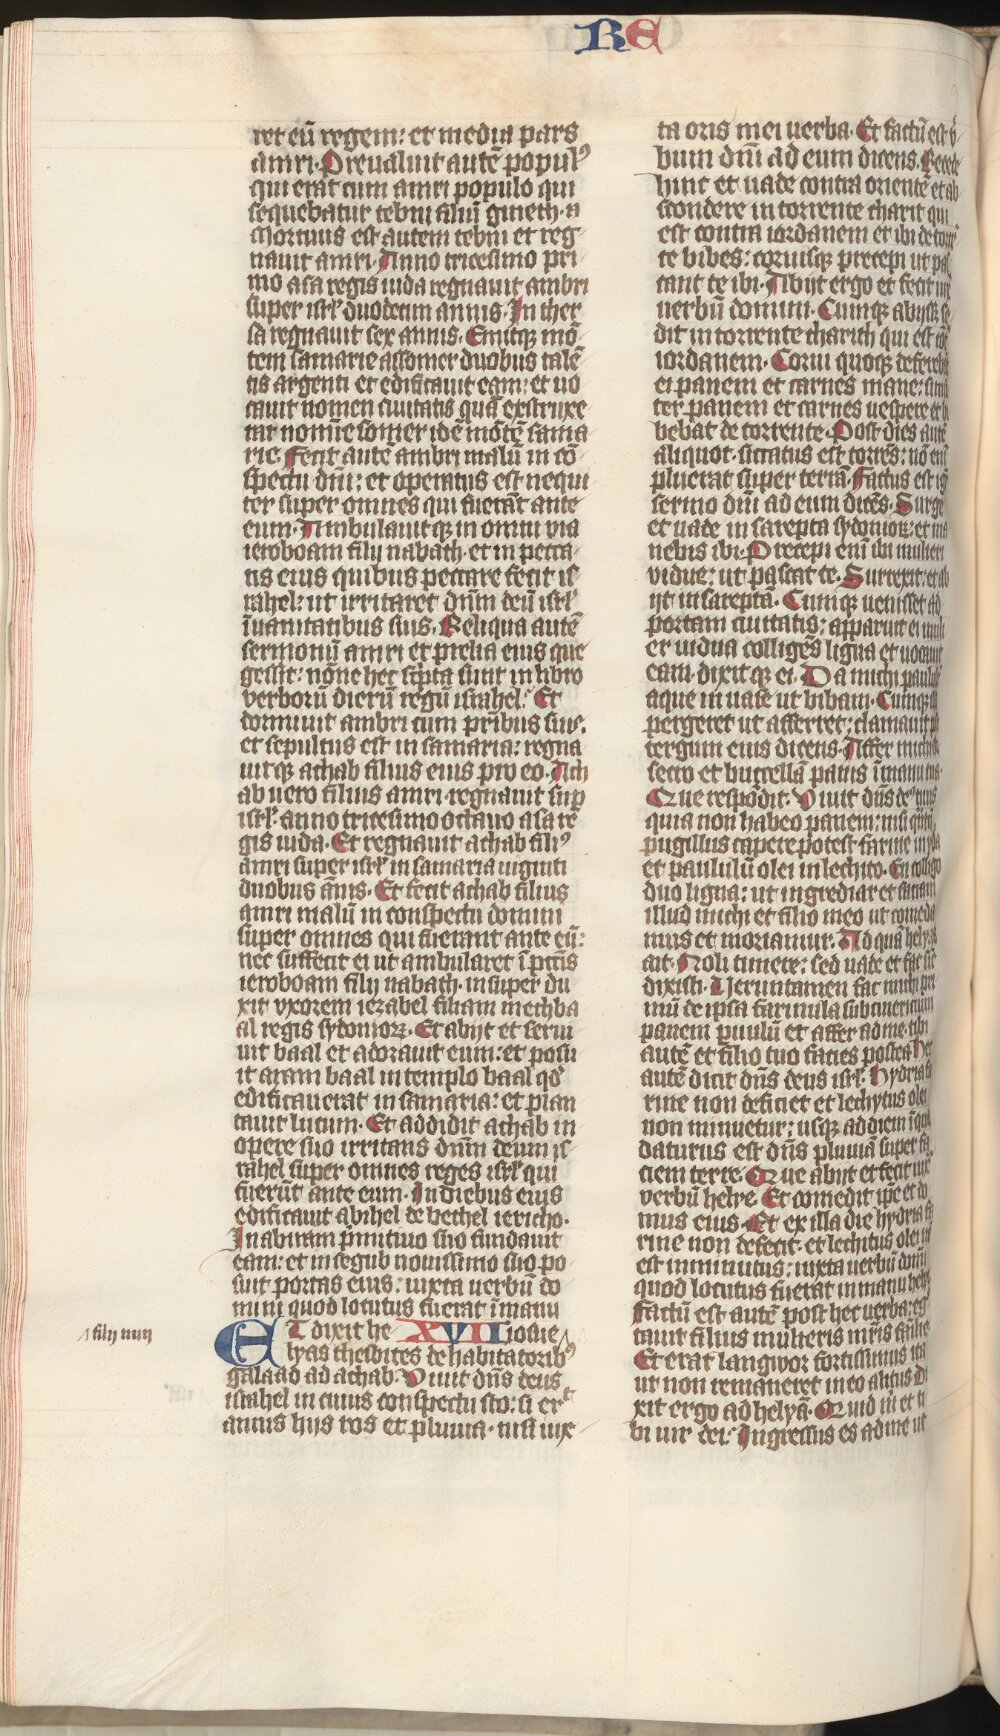 RE
ret eū regem: et media pars
amri. Preualuit autē populꝰ
qui erat cum amri populo qui
sequebatur tebni filiū gineth. a
Mortuus est autem tebni et reg
nauit amri. Anno tricesimo pri
mo asa regis iuda regnauit ambri
super isrl' duodecim annis. In ther
sa regnauit sex annis. Emitqꝫ mō
tem samarie a somer duobus talē
tis argenti et edificauit eam: et uo
cauit nomen ciuitatis quā exstruxe
rat nomīe somer idē mōtē sama
rie. Fecit autē ambri malū in cō
spectu dn̄i: et operatus est nequi
ter super omnes qui fuerāt ante
eum. Ambulauitqꝫ in omni via
ieroboam filij nabath. et in pecca
tis eius quibus peccare fecit is
rahel: ut irritaret dn̄m deū isrl'
ī uanitatibus suis. Reliqua autē
sermonū amri et prelia eius que
gessit: nōne hec sc̄pta sunt in libro
verborū dierū regū israhel: Et
dormiuit ambri cum pr̄ibus suis.
et sepultus est in samaria: regna
uitqꝫ achab filius eius pro eo. Ach
ab uero filius amri regnauit sup̄
isrl' anno tricesimo octauo asa re
gis iuda. Et regnauit achab filiꝰ
amri super isrl' in samaria uiginti
duobus ānis. Et fecit achab filius
amri malū in conspectu domini
super omnes qui fuerunt ante eū:
nec suffecit ei ut ambularet ī pctīs
ieroboam filij nabath. insuper du
xit vxorem iezabel filiam methba
al regis sydonioꝝ. Et abijt et serui
uit baal et adorauit eum: et posu
it aram baal in templo baal qd'
edificauerat in samaria: et plan
tauit lucum. Et addidit achab in
opere suo irritans dn̄m deum is
rahel super omnes reges isrl' qui
fuerūt ante eum. In diebus eius
edificauit abihel de bethel iericho.
In abiram primitiuo suo fundauit
eam: et in segub nouissimo suo po
suit portas eius: iuxta uerbū do
mini quod locutus fuerat ī manu
ET dixit he XVII iosue
filij nun
lyas thesbites de habitatoribꝰ
galaad ad achab. Viuit dn̄s deus
israhel in cuius conspectu sto: si er
annis hijs ros et pluuia. nisi iux
ta oris mei uerba. Et factū est v
bum dn̄i ad eum dicens. Recede
hinc et uade contra orientē et ab
scondere in torrente charit qui
est contra iordanem et ibi de torr
te bibes: coruisqꝫ precepi ut pas
cant te ibi. Abijt ergo et fecit iux
uerbū domini. Cumqꝫ abijsset se
dit in torrente charith qui est cō
iordanem. Corui quoqꝫ deferebāt
ei panem et carnes mane: simili
ter panem et carnes uespere et bi
bebat de torrente. Post dies autē
aliquot. siccatus est torrēs: nō enī
pluerat super terrā. Factus est igī
sermo dn̄i ad eum dicēs. Surge
et uade in sarepta sydonioꝝ: et ma
nebis ibi. Precepi enī ibi mulieri
vidue: ut pascat te. Surrexit: et ab
ijt in sareptā. Cumqꝫ uenisset ad
portam ciuitatis: apparuit ei muli
er uidua colligēs ligna et uocauit
eam. dixitqꝫ ei. Da michi paulul
aque in uase ut bibam. Cumqꝫ ill
pergeret ut afferret: clamauit p
tergum eius dicens. Affer michi ob
secro et buccellā panis ī manu tua.
Que respōdit. Viuit dn̄s deꝰ tuus
quia non habeo panem: nisi qntū
pugillus capere potest farine in yd
et paululū olei in lechito. En colligo
duo ligna: ut ingrediar et faciam
illud michi et filio meo ut comeda
mus et moriamur. Ad quā helyas
ait. Noli timere: sed uade et fac sic
dixisti. Verumtamen fac michi pri
mū de ipsa farinula subcinericium
panem puulū et affer ad me. tibi
autē et filio tuo facies postea Hec
autē dicit dn̄s deus isrl'. Hydria fa
rine non deficiet et lechytus olei
non minuetur: usqꝫ ad diem ī qua
daturus est dn̄s pluuiā super fa
ciem terre. Que abijt et fecit iux
verbū helye. Et comedit ipe et do
mus eius. Et ex illa die hydria fa
rine non defecit. et lechitus olei nō
est inminutus: iuxta uerbū domī
quod locutus fuerat in manu hely
Factū est autē post hec uerba: eg
tauit filius mulieris mr̄is fāilie
Et erat langwor fortissimus ita
ut non remaneret in eo alitus Di
xit ergo ad helyā. Quid m̄ et ti
bi uir dei: Ingressus es ad me ut